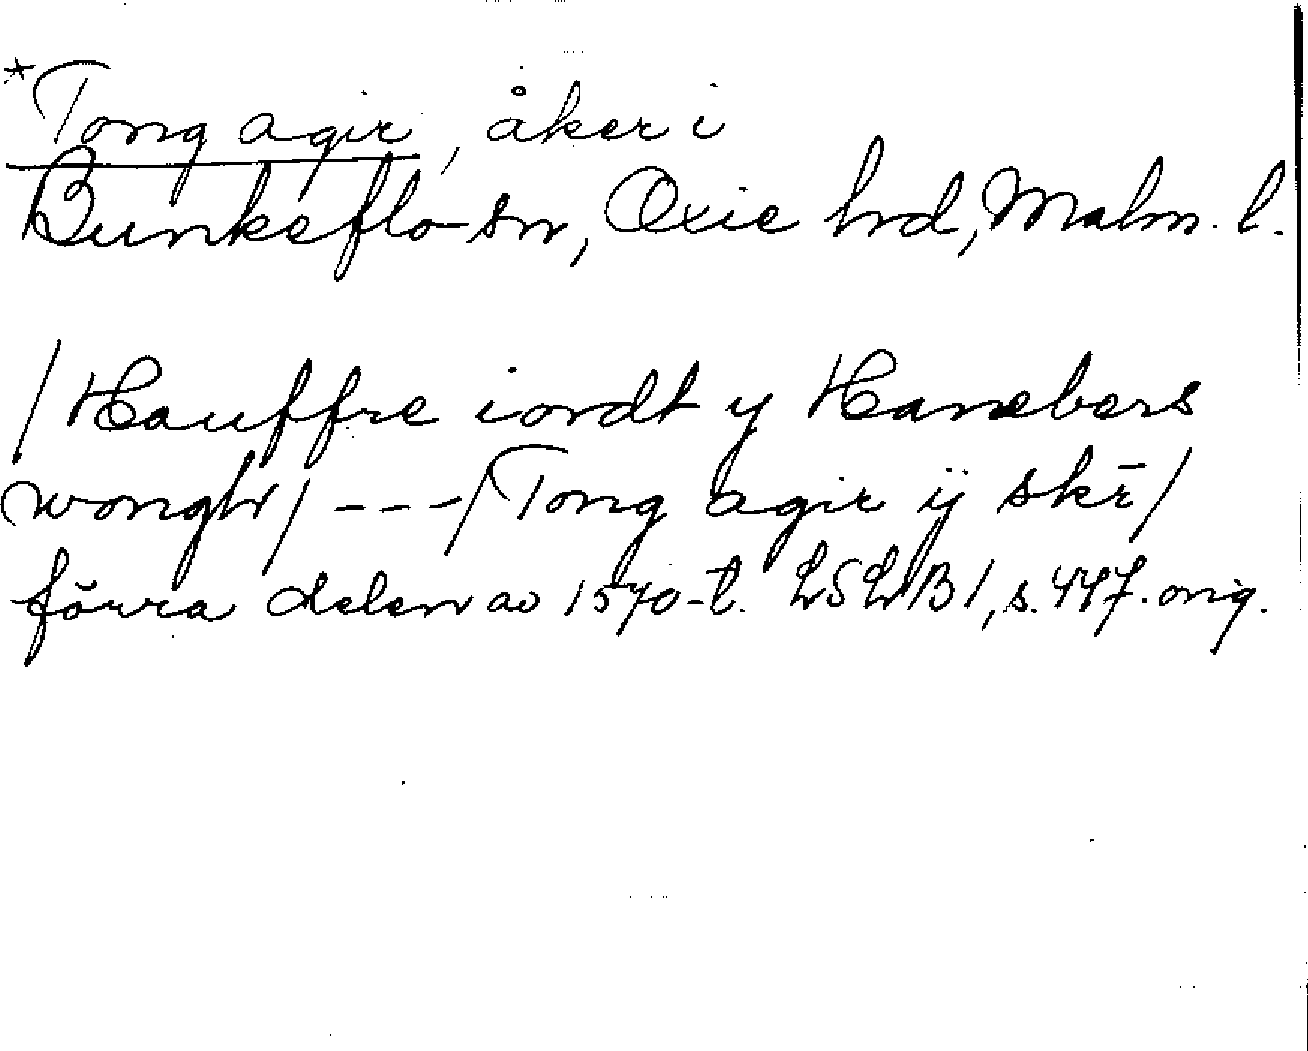 *Tong agir, åker i
Bunkeflo sn, Oxie hrd, Malm. l.
/Hauffre iordt y Hanebers
wongh/ ---/Tong agir ij skr̄/
förra delen av 1570-t. LSLB1, s. 447. orig.